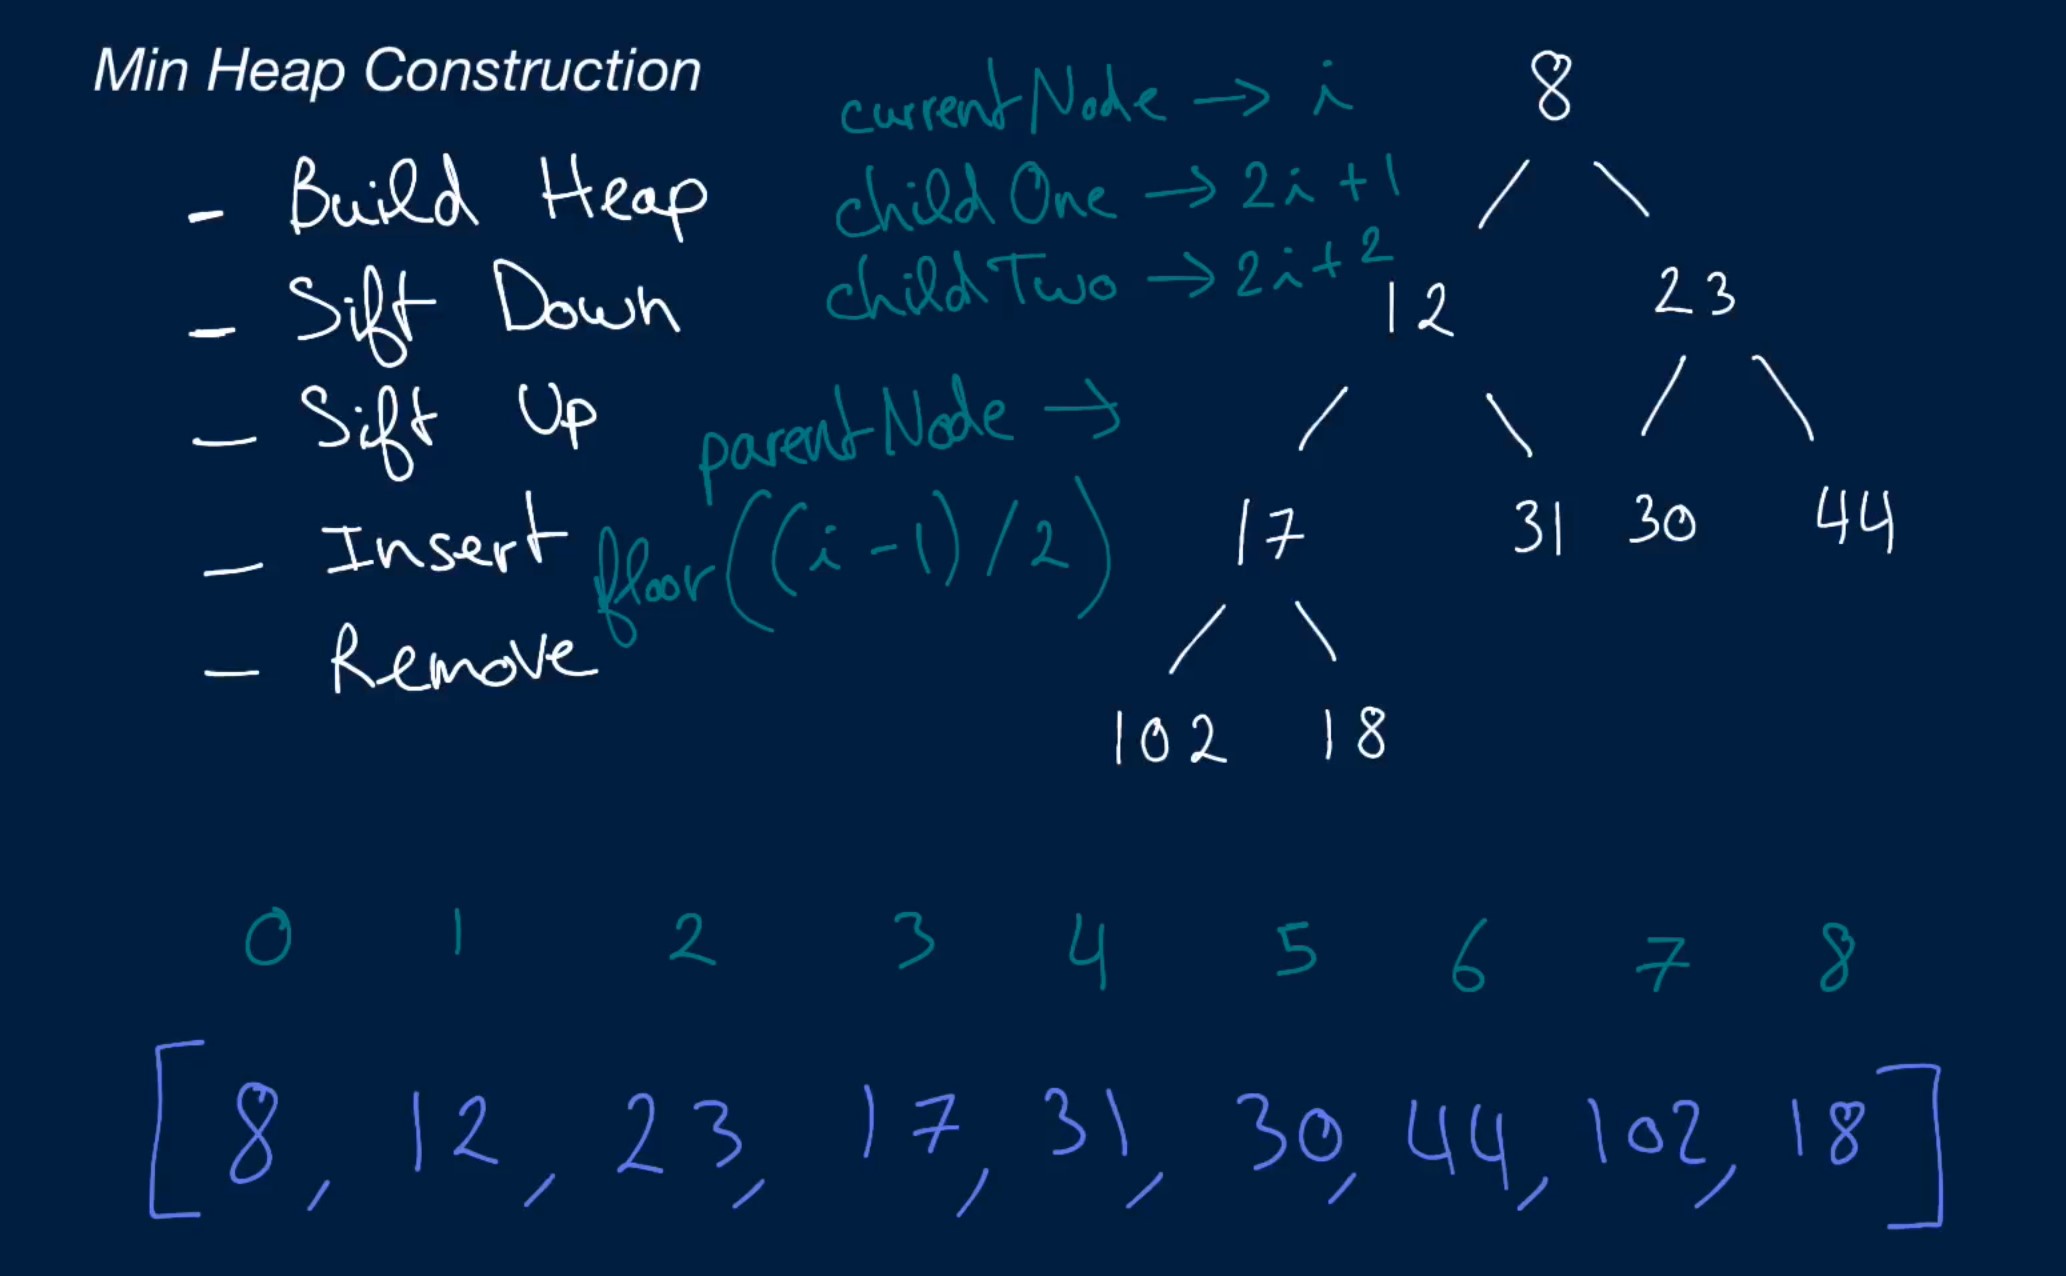 Min Heap Construction
- Build Heap
- Sift Down
- Sift Up
- Insert
- Remove
currentNode → i
childOne → 2i+1
childTwo → 2i+2
parentNode →
floor((i-1)/2)
8
12 23
17 31 30 44
102 18
0 1 2 3 4 5 6 7 8
[8, 12, 23, 17, 31, 30, 44, 102, 18]